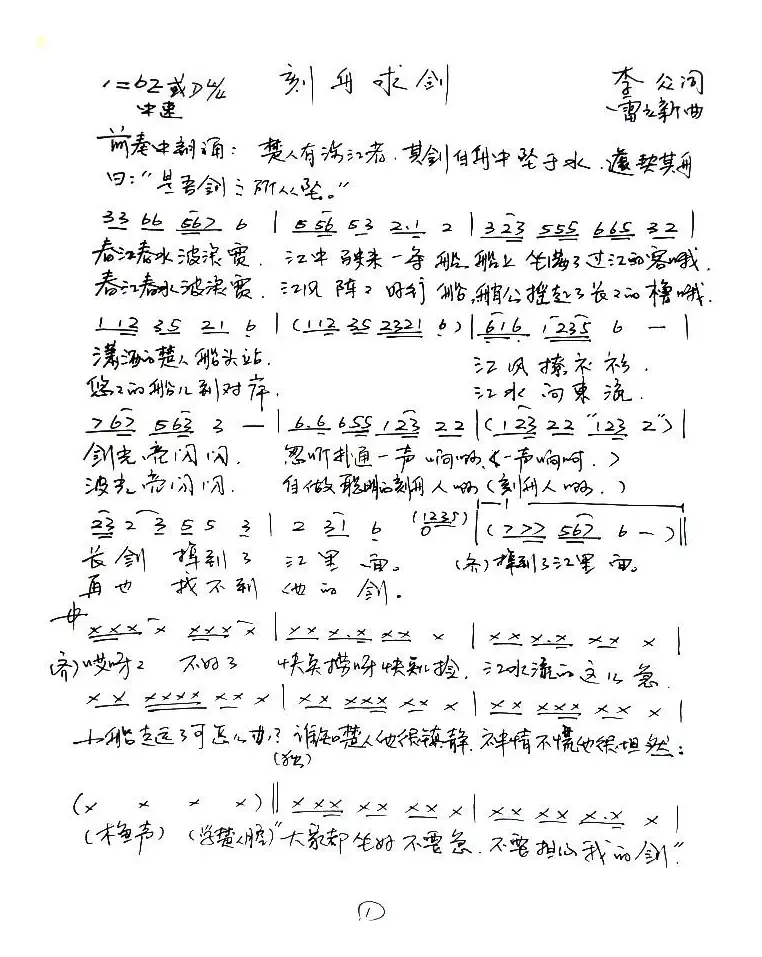 刻舟求剑
1=bE或D 4/4 李众词
中速 雷立新曲
前奏中朗诵：楚人有涉江者，其剑自舟中坠于水，遽契其舟
曰："是吾剑之所从坠。"
33 66 567 6 | 5 56 53 2.1 2 | 3 23 555 665 32 |
春江春水波浪宽，江中驶来一条船，船上坐满了过江的客哦，
春江春水波浪宽，江风阵2好行船，艄公摇起了长2的橹哦，
112 35 21 6 | (112 35 2321 6) | 616 1235 6 — |
潇洒的楚人船头站， 江风撩衣衫，
悠2的船儿到对岸， 江水向东流，
767 563 3 — | 6.6 655 123 22 | (123 22 "123 2") |
剑光亮闪闪， 忽听扑通一声响啊，(一声响啊，)
波光亮闪闪， 自做聪明的刻舟人啊，(刻舟人啊，)
23 2 3 5 5 3 | 2 31 6 (1235) 0 | (777 567 6 —) ||
长剑掉到了江里面。 (齐)掉到了江里面。
再也找不到他的剑。
xxx x xxx x | xx x.x xx x | xx x.x xx x |
(齐)哎呀2 不好了 快点捞呀快点捡，江水流的这么急，
xx xxxx xx x | xx xxx xx x | xx xxx xx x |
小船走远了可怎么办？谁知楚人他很镇静，神情不慌他很坦然：
(独)
(x x x x) || xxx xx xx x | xx xx x.x x |
(木鱼声) (学楚人腔)"大家都坐好不要急，不要担心我的剑"
1